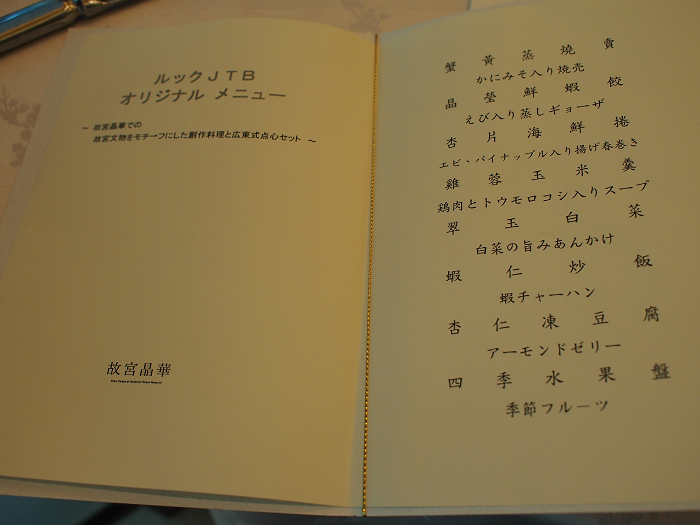 ルックＪＴＢ
オリジナル メニュー
～ 故宮晶華での
故宮文物をモチーフにした創作料理と広東式点心セット ～
故宮晶華
Silks Palace at National Palace Museum
蟹黄蒸燒賣
かにみそ入り焼売
晶瑩鮮蝦餃
えび入り蒸しギョーザ
杏片海鮮捲
エビ・パイナップル入り揚げ春巻き
雞蓉玉米羹
鶏肉とトウモロコシ入りスープ
翠玉白菜
白菜の旨みあんかけ
蝦仁炒飯
蝦チャーハン
杏仁凍豆腐
アーモンドゼリー
四季水果盤
季節フルーツ